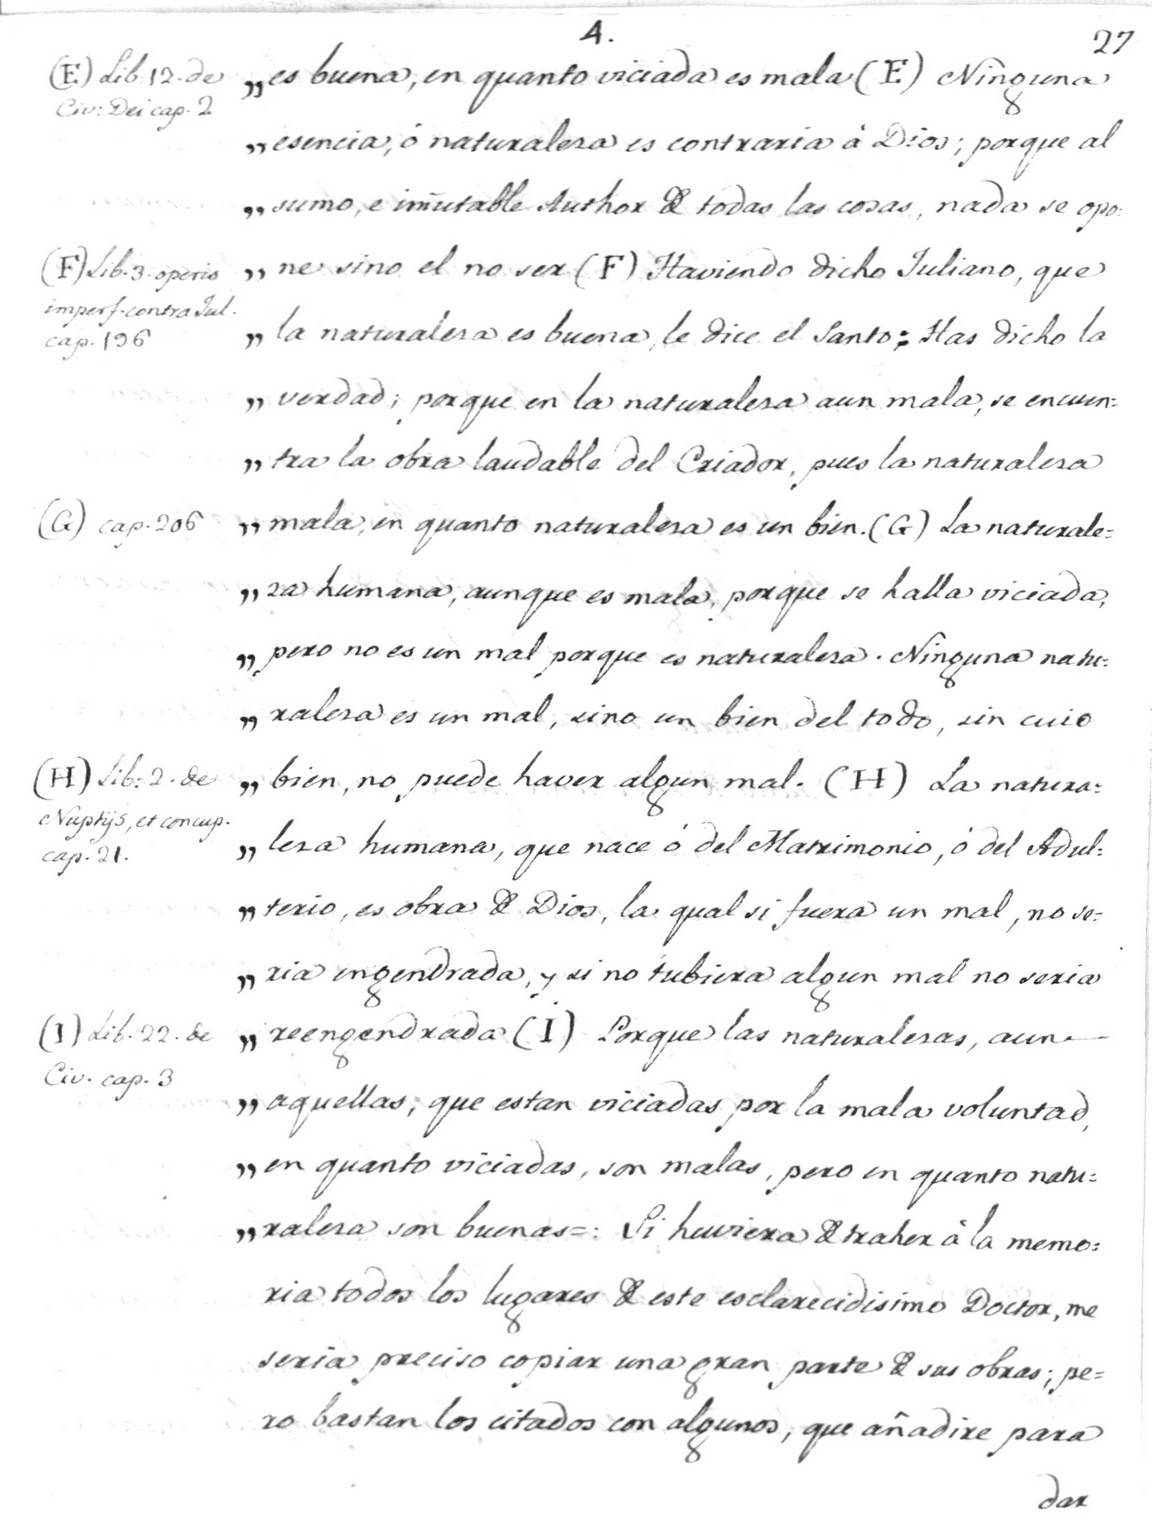 4.
27
(E) Lib. 12. de
Civ: Dei cap. 2
„ es buena, en quanto viciada es mala (E) Ninguna
„ esencia, ó naturalesa es contraria à Dios; porque al
„ sumo, e im̃utable Author de todas las cosas, nada se opo:
(F) Lib. 3. operis
imperf. contra Jul.
cap. 196
„ ne sino el no ser (F) Haviendo dicho Juliano, que
„ la naturalesa es buena, le dice el Santo: Has dicho la
„ verdad; porque en la naturalesa aun mala, se encuen:
„ tra la obra laudable del Criador, pues la naturalesa
(G) cap. 206
„ mala, en quanto naturalesa es un bien. (G) La naturale=
„ za humana, aunque es mala, porque se halla viciada,
„ pero no es un mal porque es naturalesa. Ninguna natu:
„ ralesa es un mal, sino un bien del todo, sin cuio
(H) Lib: 2. de
Nuptijs, et concup.
cap. 21.
„ bien, no puede haver algun mal. (H) La natura:
„ lesa humana, que nace ó del Matrimonio, ó del Adul:
„ terio, es obra de Dios, la qual si fuera un mal, no se=
„ ria engendrada, y si no tubiera algun mal no seria
(I) Lib. 22. de
Civ. cap. 3
„ reengendrada (I) Porque las naturalesas, aun
„ aquellas, que estan viciadas por la mala voluntad,
„ en quanto viciadas, son malas, pero en quanto natu:
„ ralesa son buenas=: Si huviera de traher à la memo:
ria todos los lugares de este esclarecidisimo Doctor, me
seria preciso copiar una gran parte de sus obras; pe=
ro bastan los citados con algunos, que añadire para
dar